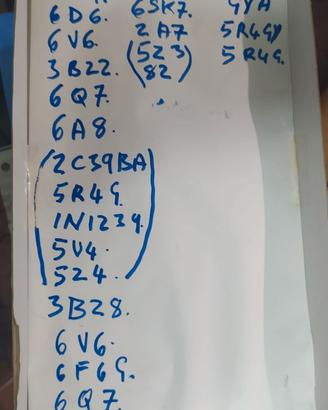 6D6.
6V6.
3B22.
6Q7.
6A8.
(2C39BA
5R4G.
1N1239.
5V4.
524.)
3B28.
6V6.
6F6G.
6Q7.
6SK7.
2A7
(523
82)
5R4GY
5R4G.